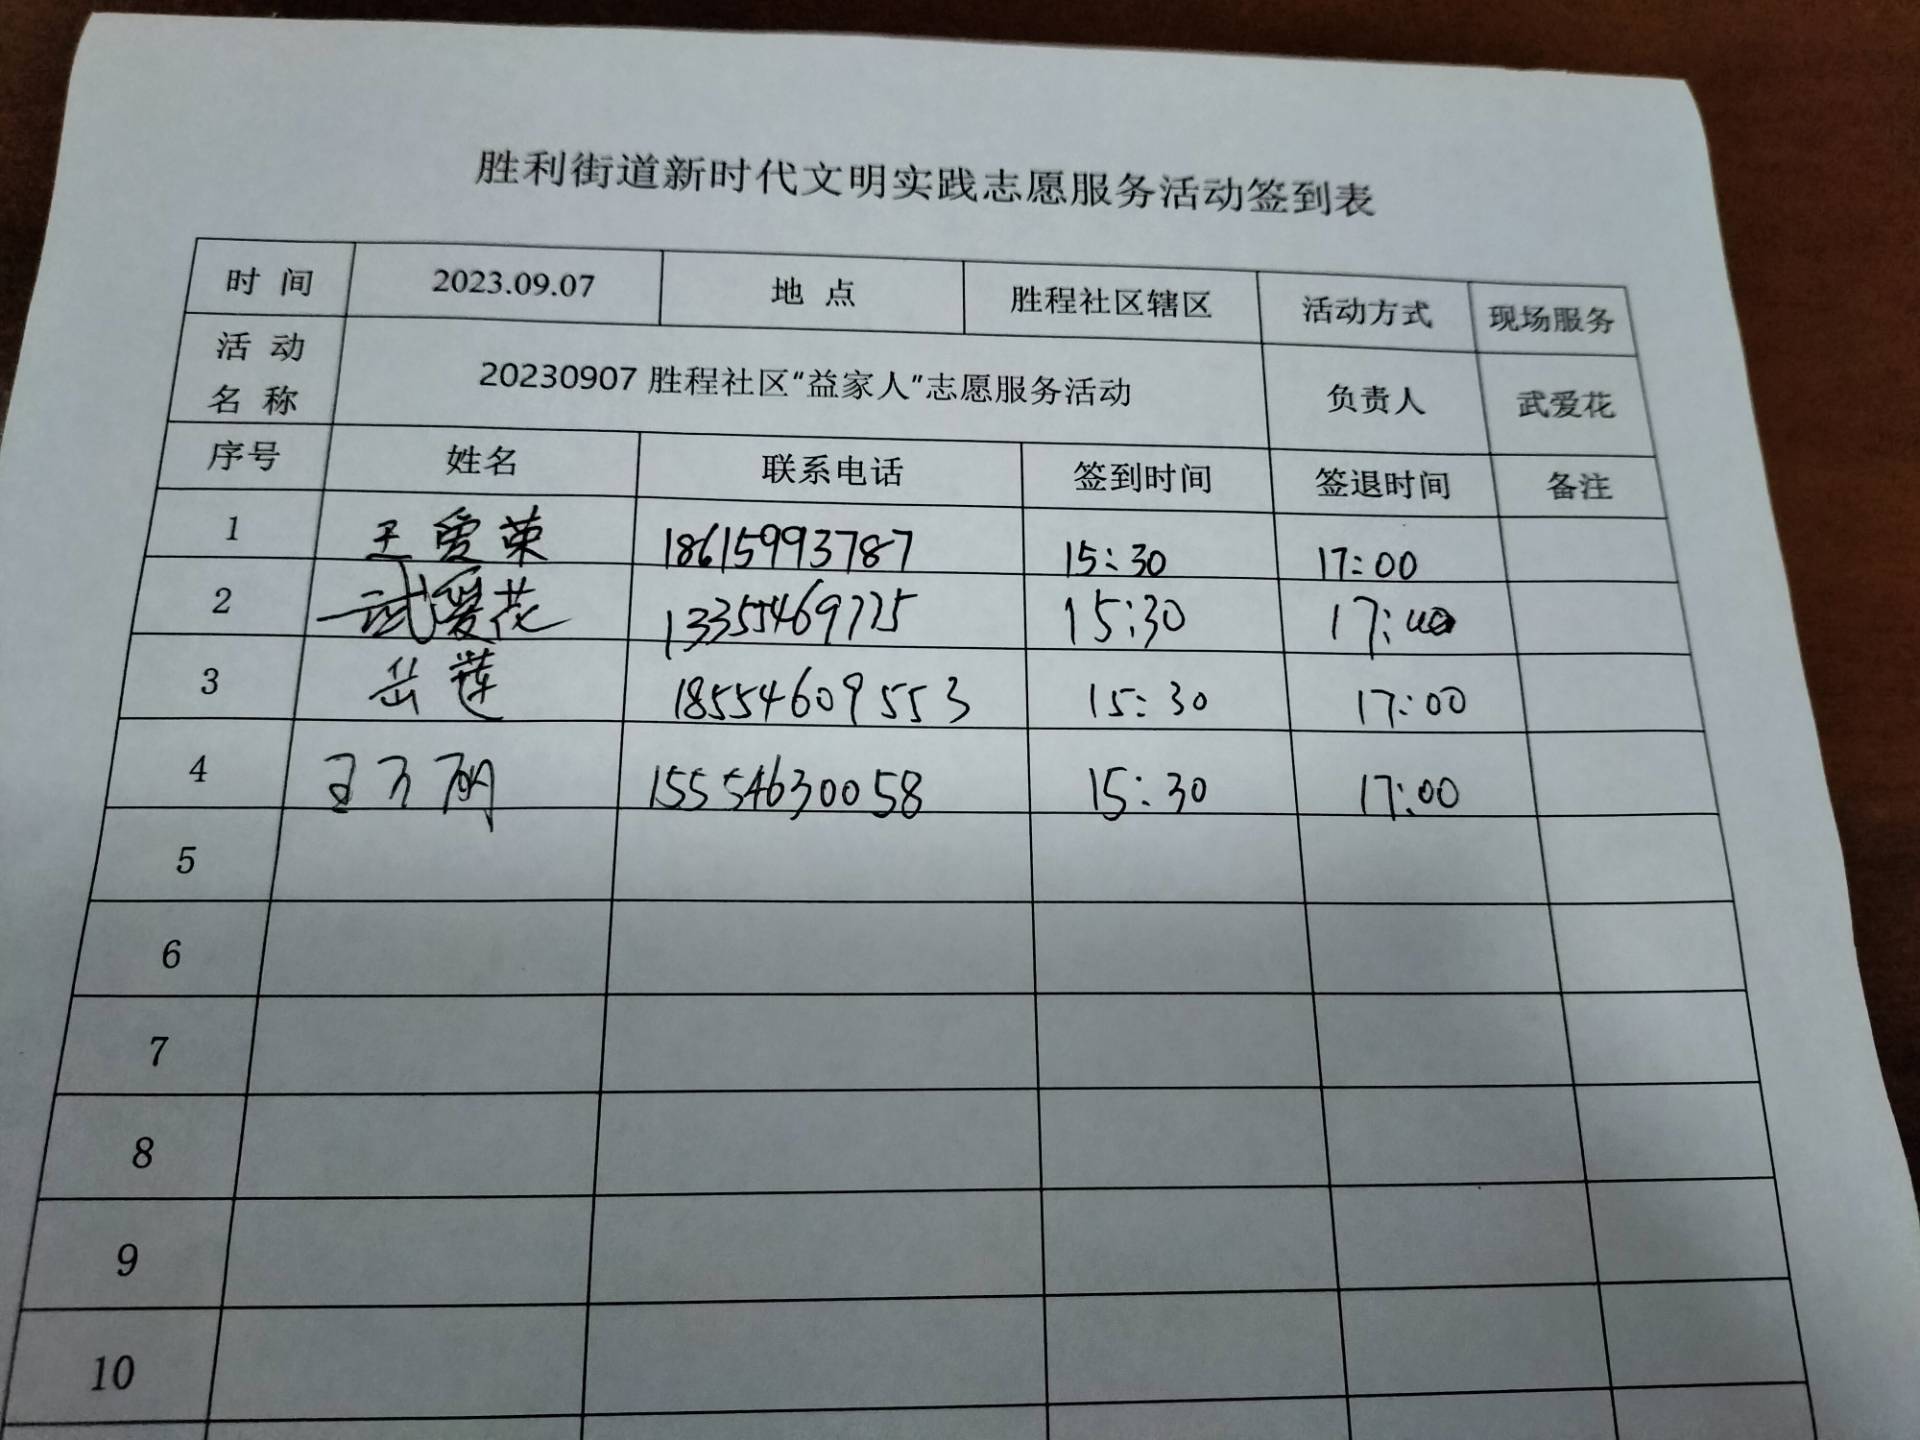 胜利街道新时代文明实践志愿服务活动签到表
时 间 2023.09.07 地 点 胜程社区辖区 活动方式 现场服务
活 动
名 称 20230907 胜程社区“益家人”志愿服务活动 负责人 武爱花
序号 姓名 联系电话 签到时间 签退时间 备注
1 王爱荣 18615993787 15:30 17:00
2 武爱花 13355469775 15:30 17:00
3 岳莲 18554609553 15:30 17:00
4 王万明 15554630058 15:30 17:00
5
6
7
8
9
10